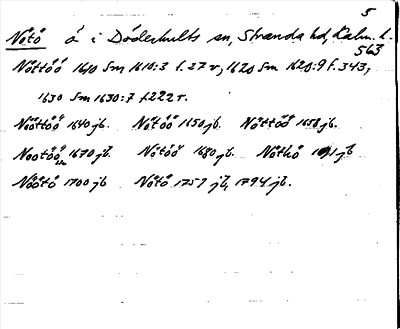 5
Nötö å i Döderhults sn, Stranda hd, Kalm. l.
563
Nöttöö 1610 Sm 1610:3 f. 27 v, 1620 Sm 1620:9 f. 343,
1630 Sm 1630:7 f.222 r.
Nööttöö 1640 jb. Nötöö 1650 jb. Nöttöö 1658 jb.
Nootöö 1670 jb. Nötöö 1680 jb. Nöthö 1691 jb
Nöötö 1700 jb Nötö 1757 jb, 1794 jb.